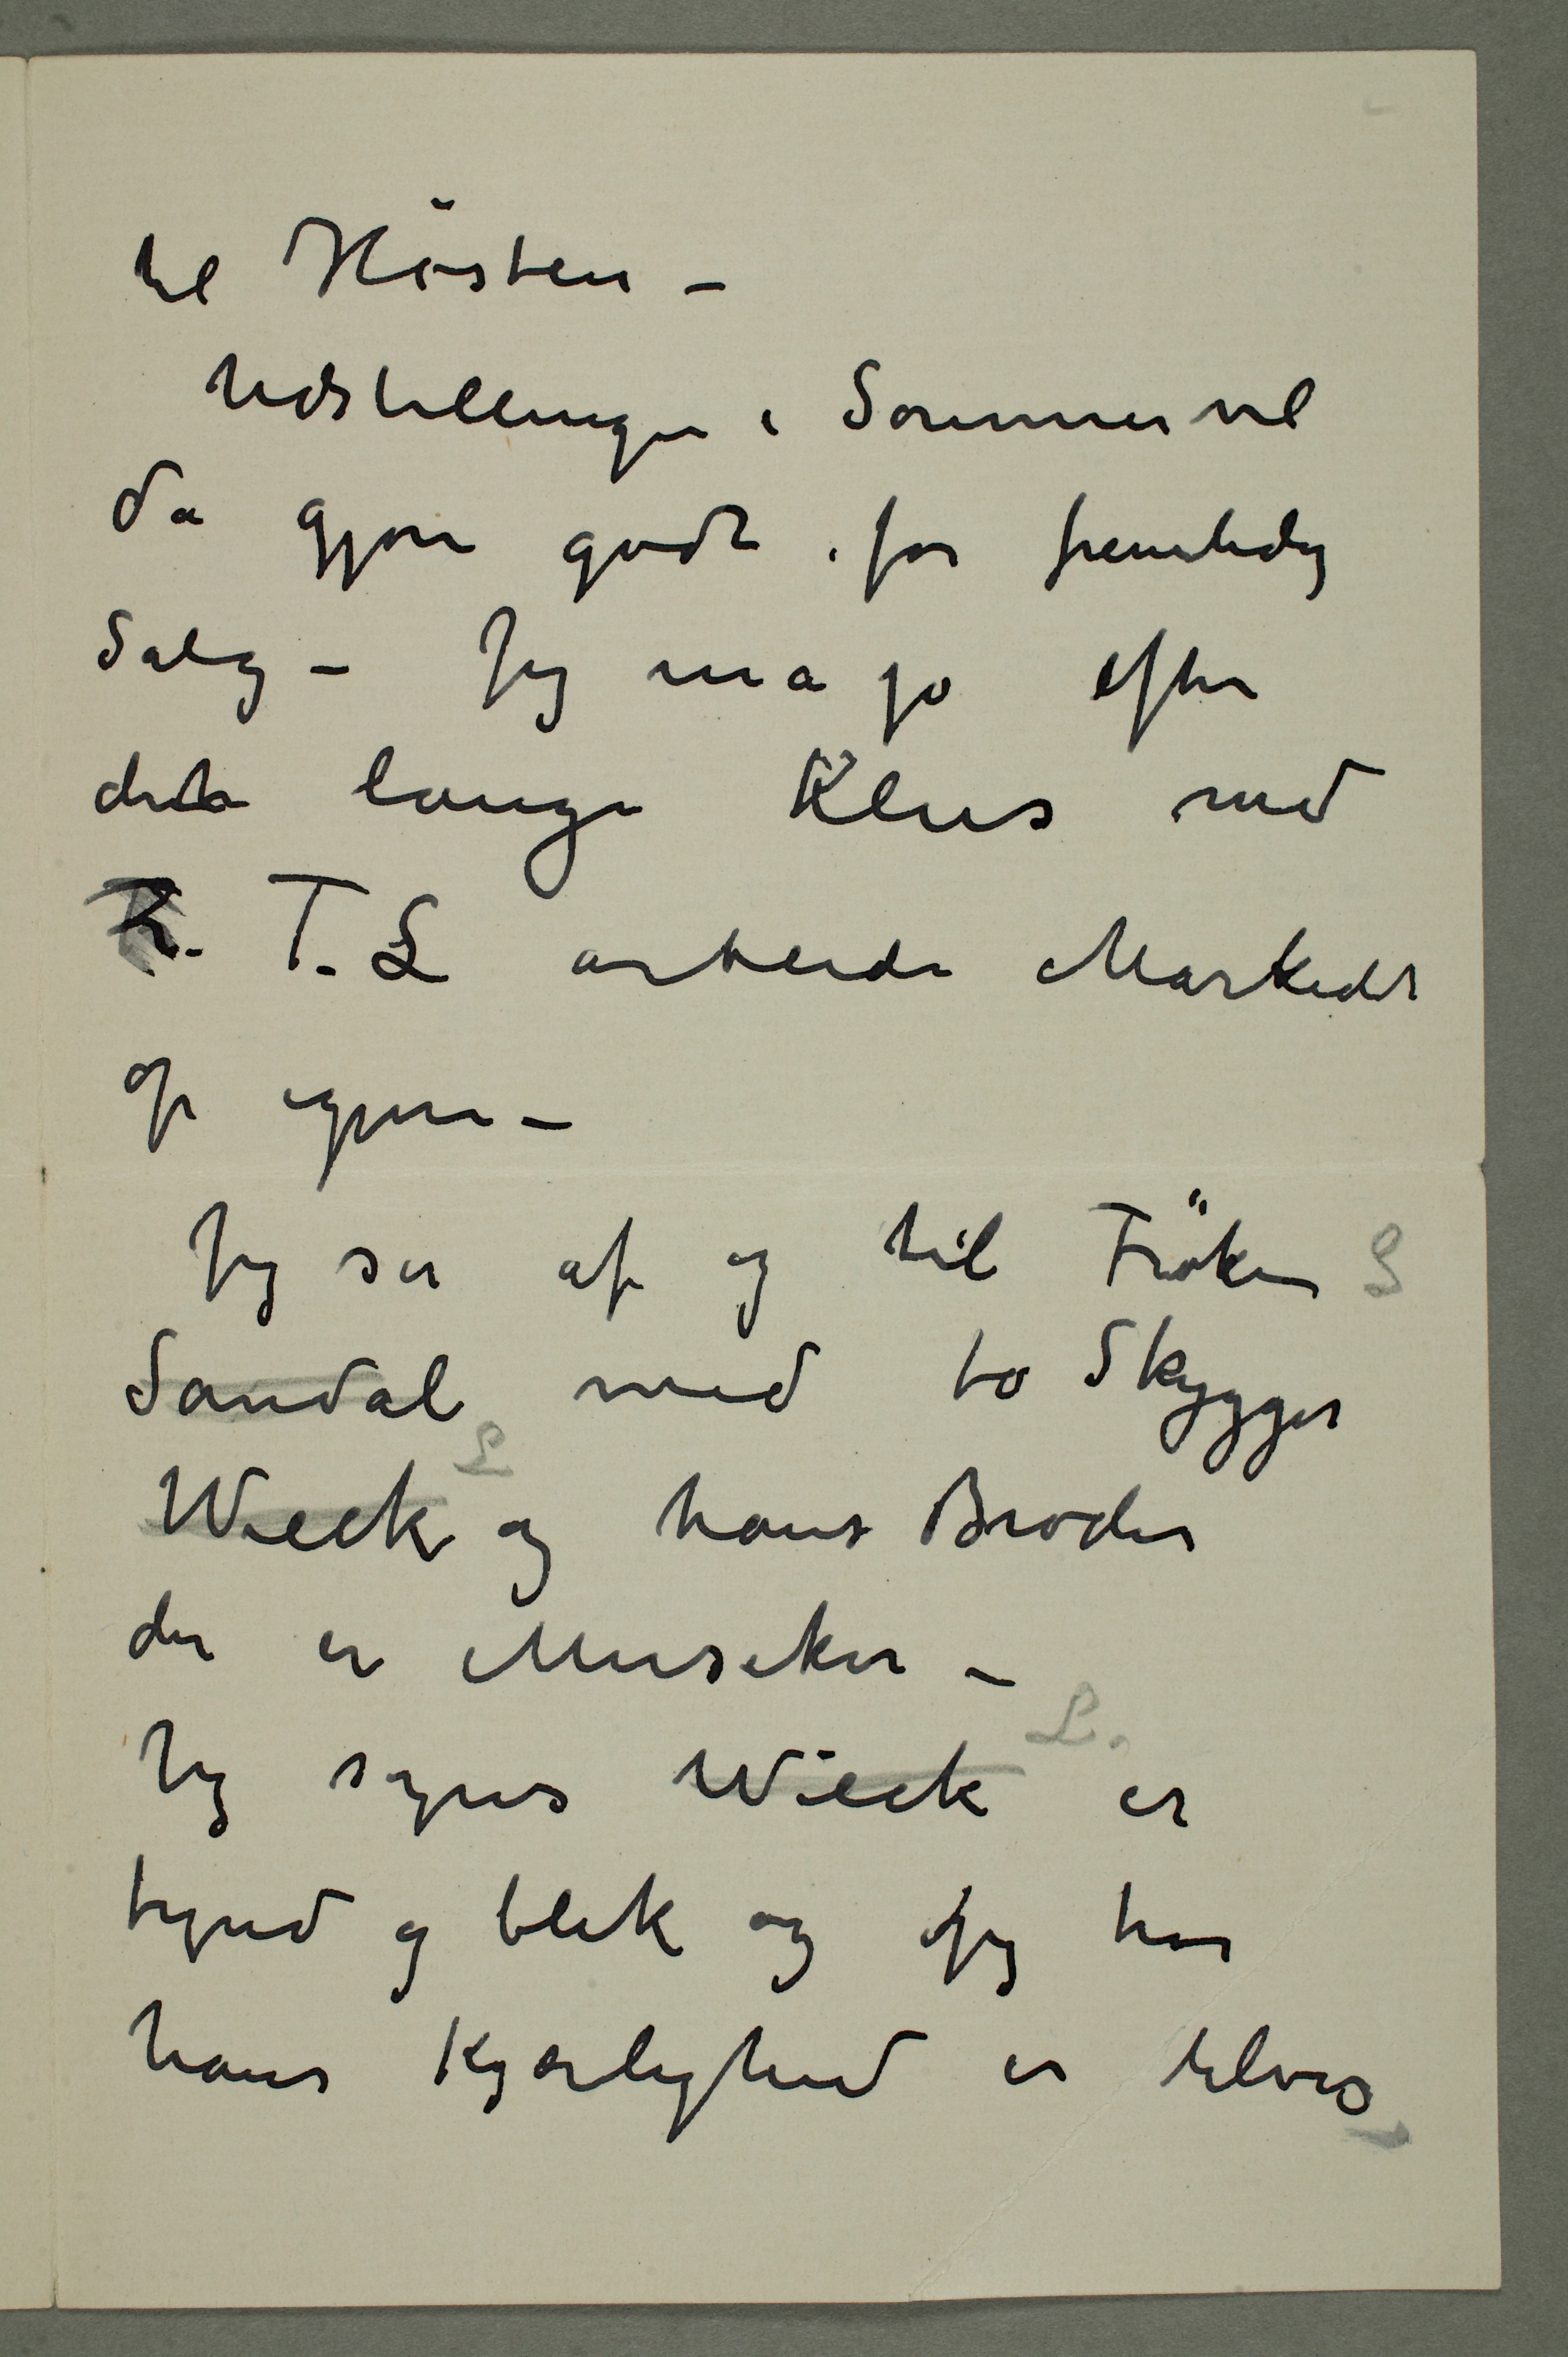 til Hösten –
Udstillinger i Sommer vil
da gjøre godt for fremtidig
Salg – Jeg må jo efter
dette lange Klus med
T. L arbeide Markedet
op igjen –
Jeg ser af og til Fröken L
Sandal med to Skygger
L
Wieck og hans Broder
der er Musiker –
L.
Jeg synes Wieck er
tynd og blek og jeg tror
hans Kjærlighed er tilvis